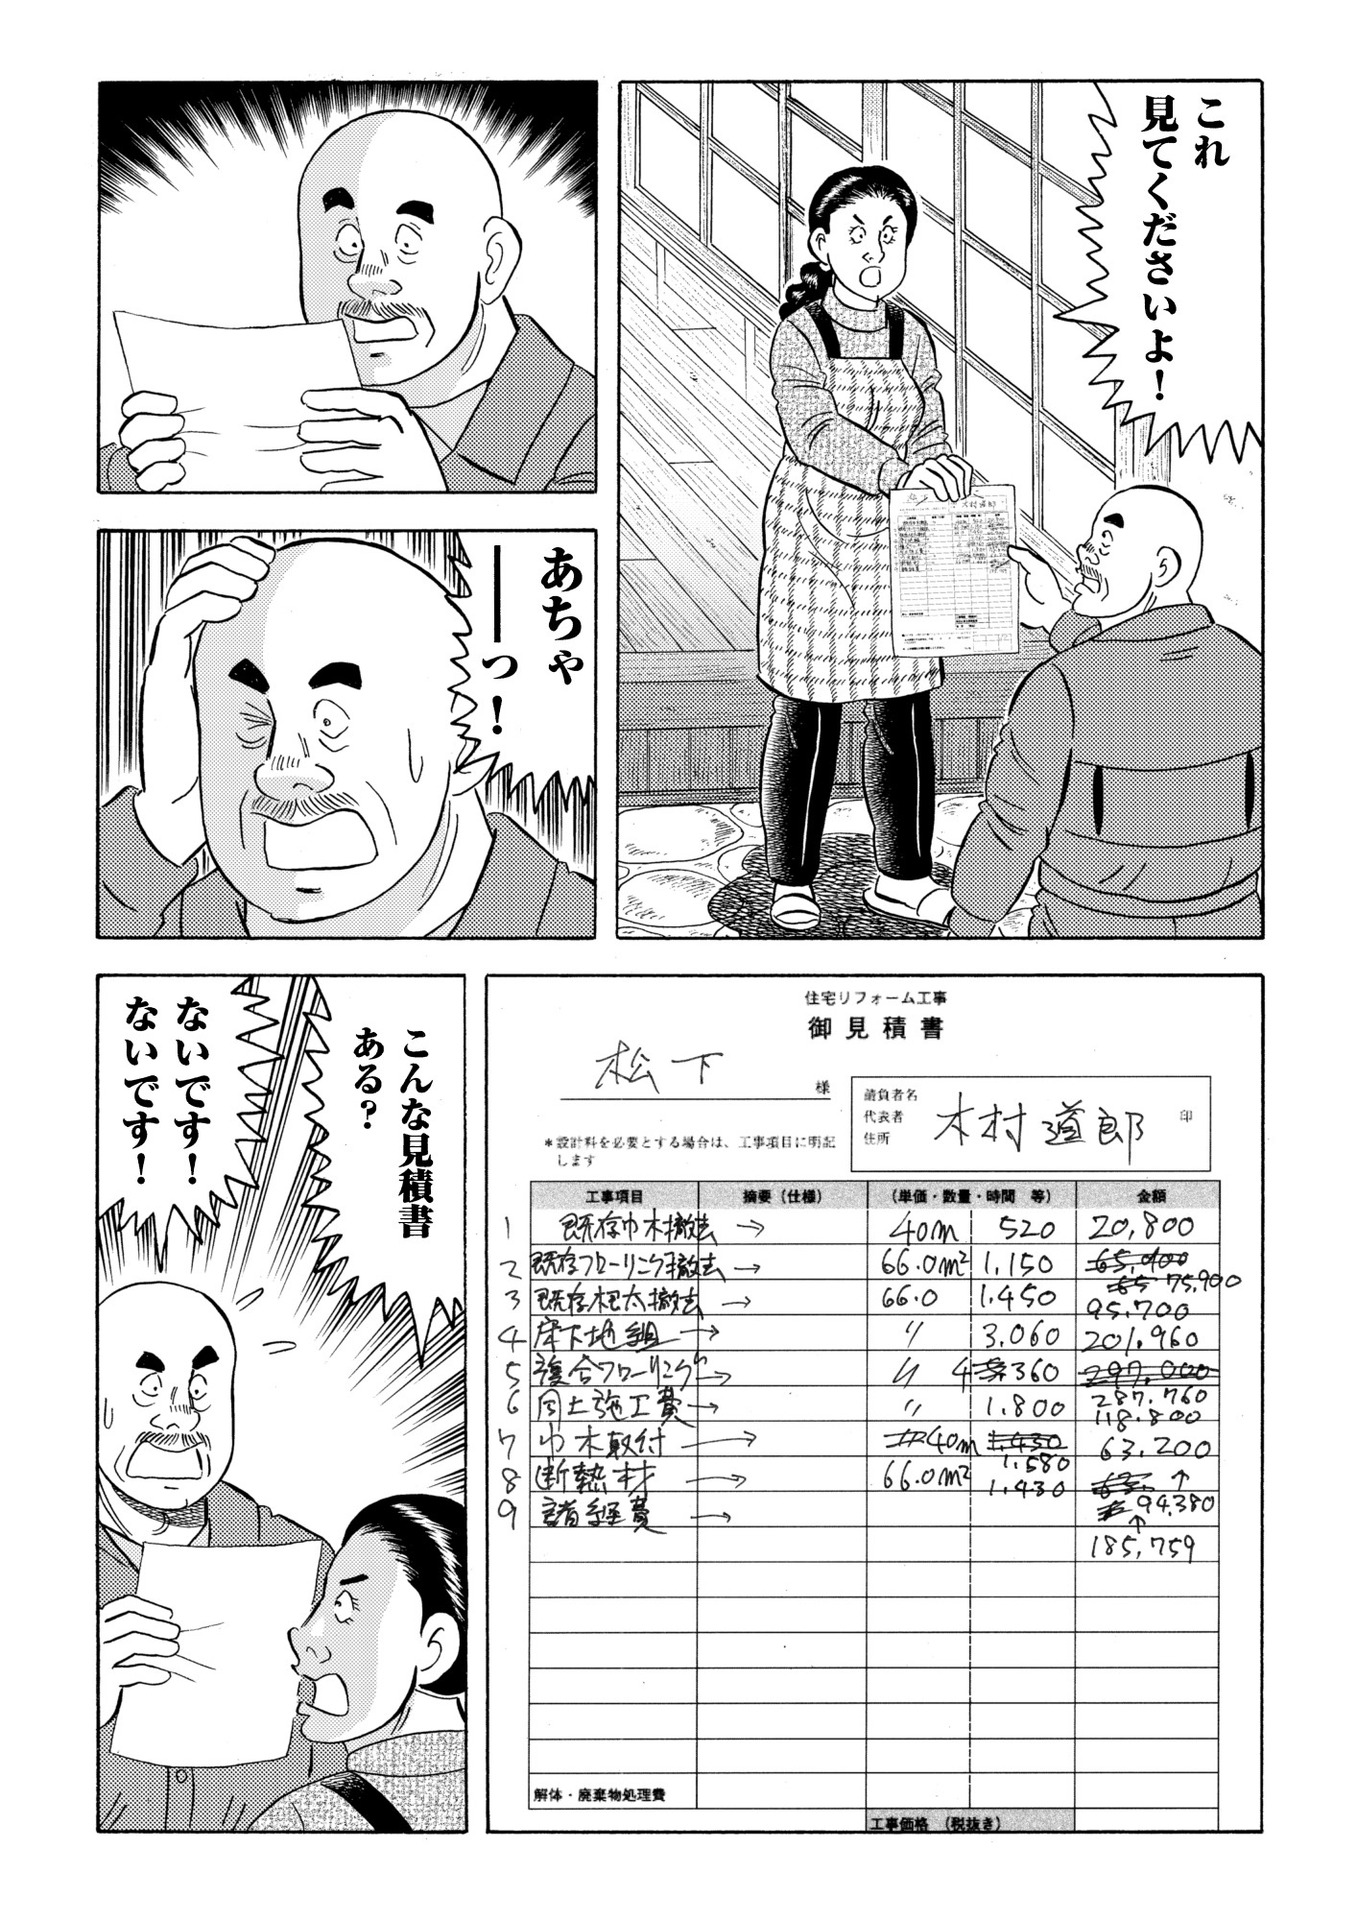 これ
見てくださいよ！
あちゃ
ーーっ！
住宅リフォーム工事
御見積書
松下 様
請負者名
代表者
住所
木村道郎 印
＊設計料を必要とする場合は、工事項目に明記
します
工事項目 摘要（仕様） （単価・数量・時間 等） 金額
1 既存巾木撤去 → 40m 520 20,800
2 既存フローリング撤去 → 66.0m² 1,150 65,000
65 75,900
3 既存根太撤去 → 66.0 1,450 95,700
4 床下地組 → 〃 3,060 201,960
5 複合フローリング → 〃 4 360 297,000
287,760
6 同上施工費 → 〃 1,800 118,800
7 巾木取付 → 40m 1,430 63,200
1,580
8 断熱材 → 66.0m² 1,430 ↑
94,380
9 諸経費 → ↑
185,759
解体・廃棄物処理費
工事価格 （税抜き）
こんな見積書
ある？
ないです！
ないです！